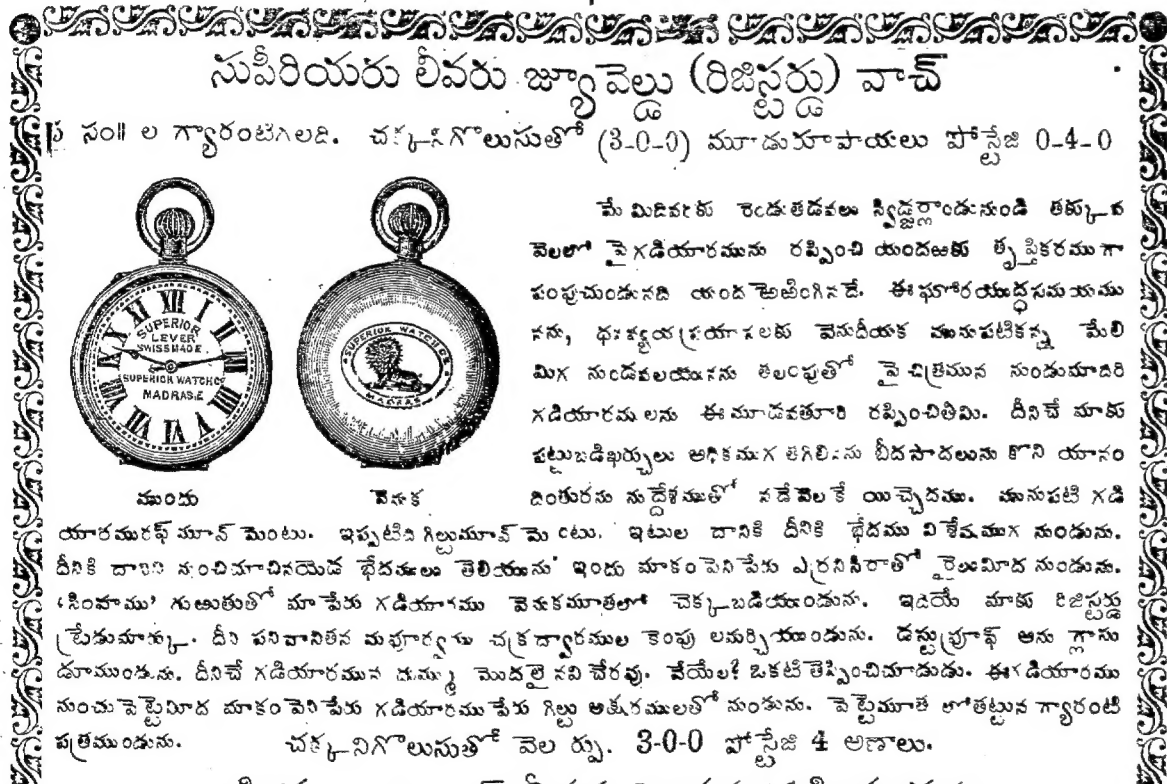 సుపీరియరు లీవరు జ్యూవెల్డు (రిజిస్టర్డు) వాచ్
సం॥ ల గ్యారంటీగలది. చక్కనిగొలుసుతో (3-0-0) మూడురూపాయలు పోస్టేజి 0-4-0
SUPERIOR
LEVER
SWISS MADE
SUPERIOR WATCH CO
MADRAS.E
SUPERIOR WATCH CO
MADRAS
ముందు
వెనుక
మే మిదివరకు రెండుతడవలు స్విడ్జర్లాండునుండి తక్కువ
వెలలో పైగడియారమును రప్పించి యందఱకు తృప్తికరముగా
పంపుచుండునది యంద ఱెఱింగినదే. ఈఘోరయుద్ధసమయము
నను, ధనవ్యయప్రయాసలకు వెనుదీయక మునుపటికన్న మేలి
మిగ నుండవలయునను తలంపుతో పై చిత్రమున నుండుమాదిరి
గడియారములను ఈమూడవతూరి రప్పించితిమి. దీనిచే మాకు
పట్టుబడిఖర్చులు అధికముగ తగిలినను బీదసాదలును కొని యానం
దింతురను నుద్దేశముతో నడేవెలకే యిచ్చెదము. మునుపటి గడి
యారమురఫ్ మూవ్ మెంటు. ఇప్పటిది గిల్టుమూవ్ మెంటు. ఇటుల దానికి దీనికి భేదము విశేషముగ నుండును.
దీనికి దానిని నుంచిచూచినయెడ భేదములు తెలియును' ఇందు మాకంపెనిపేరు ఎర్రనిసిరాతో రైలుమీద నుండును.
'సింహము' గుఱుతుతో మా పేరు గడియారము వెనుకమూతలో చెక్కబడియుండును. ఇదియే మాకు రిజిస్టర్డు
ట్రేడుమార్కు. దీని పనివానితన మపూర్వము చక్రద్వారముల కెంపు లమర్చియుండును. డస్టుప్రూఫ్ అను గ్లాసు
డూముండును. దీనిచే గడియారమున దుమ్ము మొదలైనవి చేరవు. వేయేల? ఒకటి తెప్పించిచూడుడు. ఈగడియారము
నుంచు పెట్టెమీద మాకంపెనిపేరు గడియారముపేరు గిల్టు అక్షరములతో నుండును. పెట్టెమూత లోతట్టున గ్యారంటి
పత్రముండును. చక్కనిగొలుసుతో వెల ర్పు. 3-0-0 పోస్టేజి 4 అణాలు.